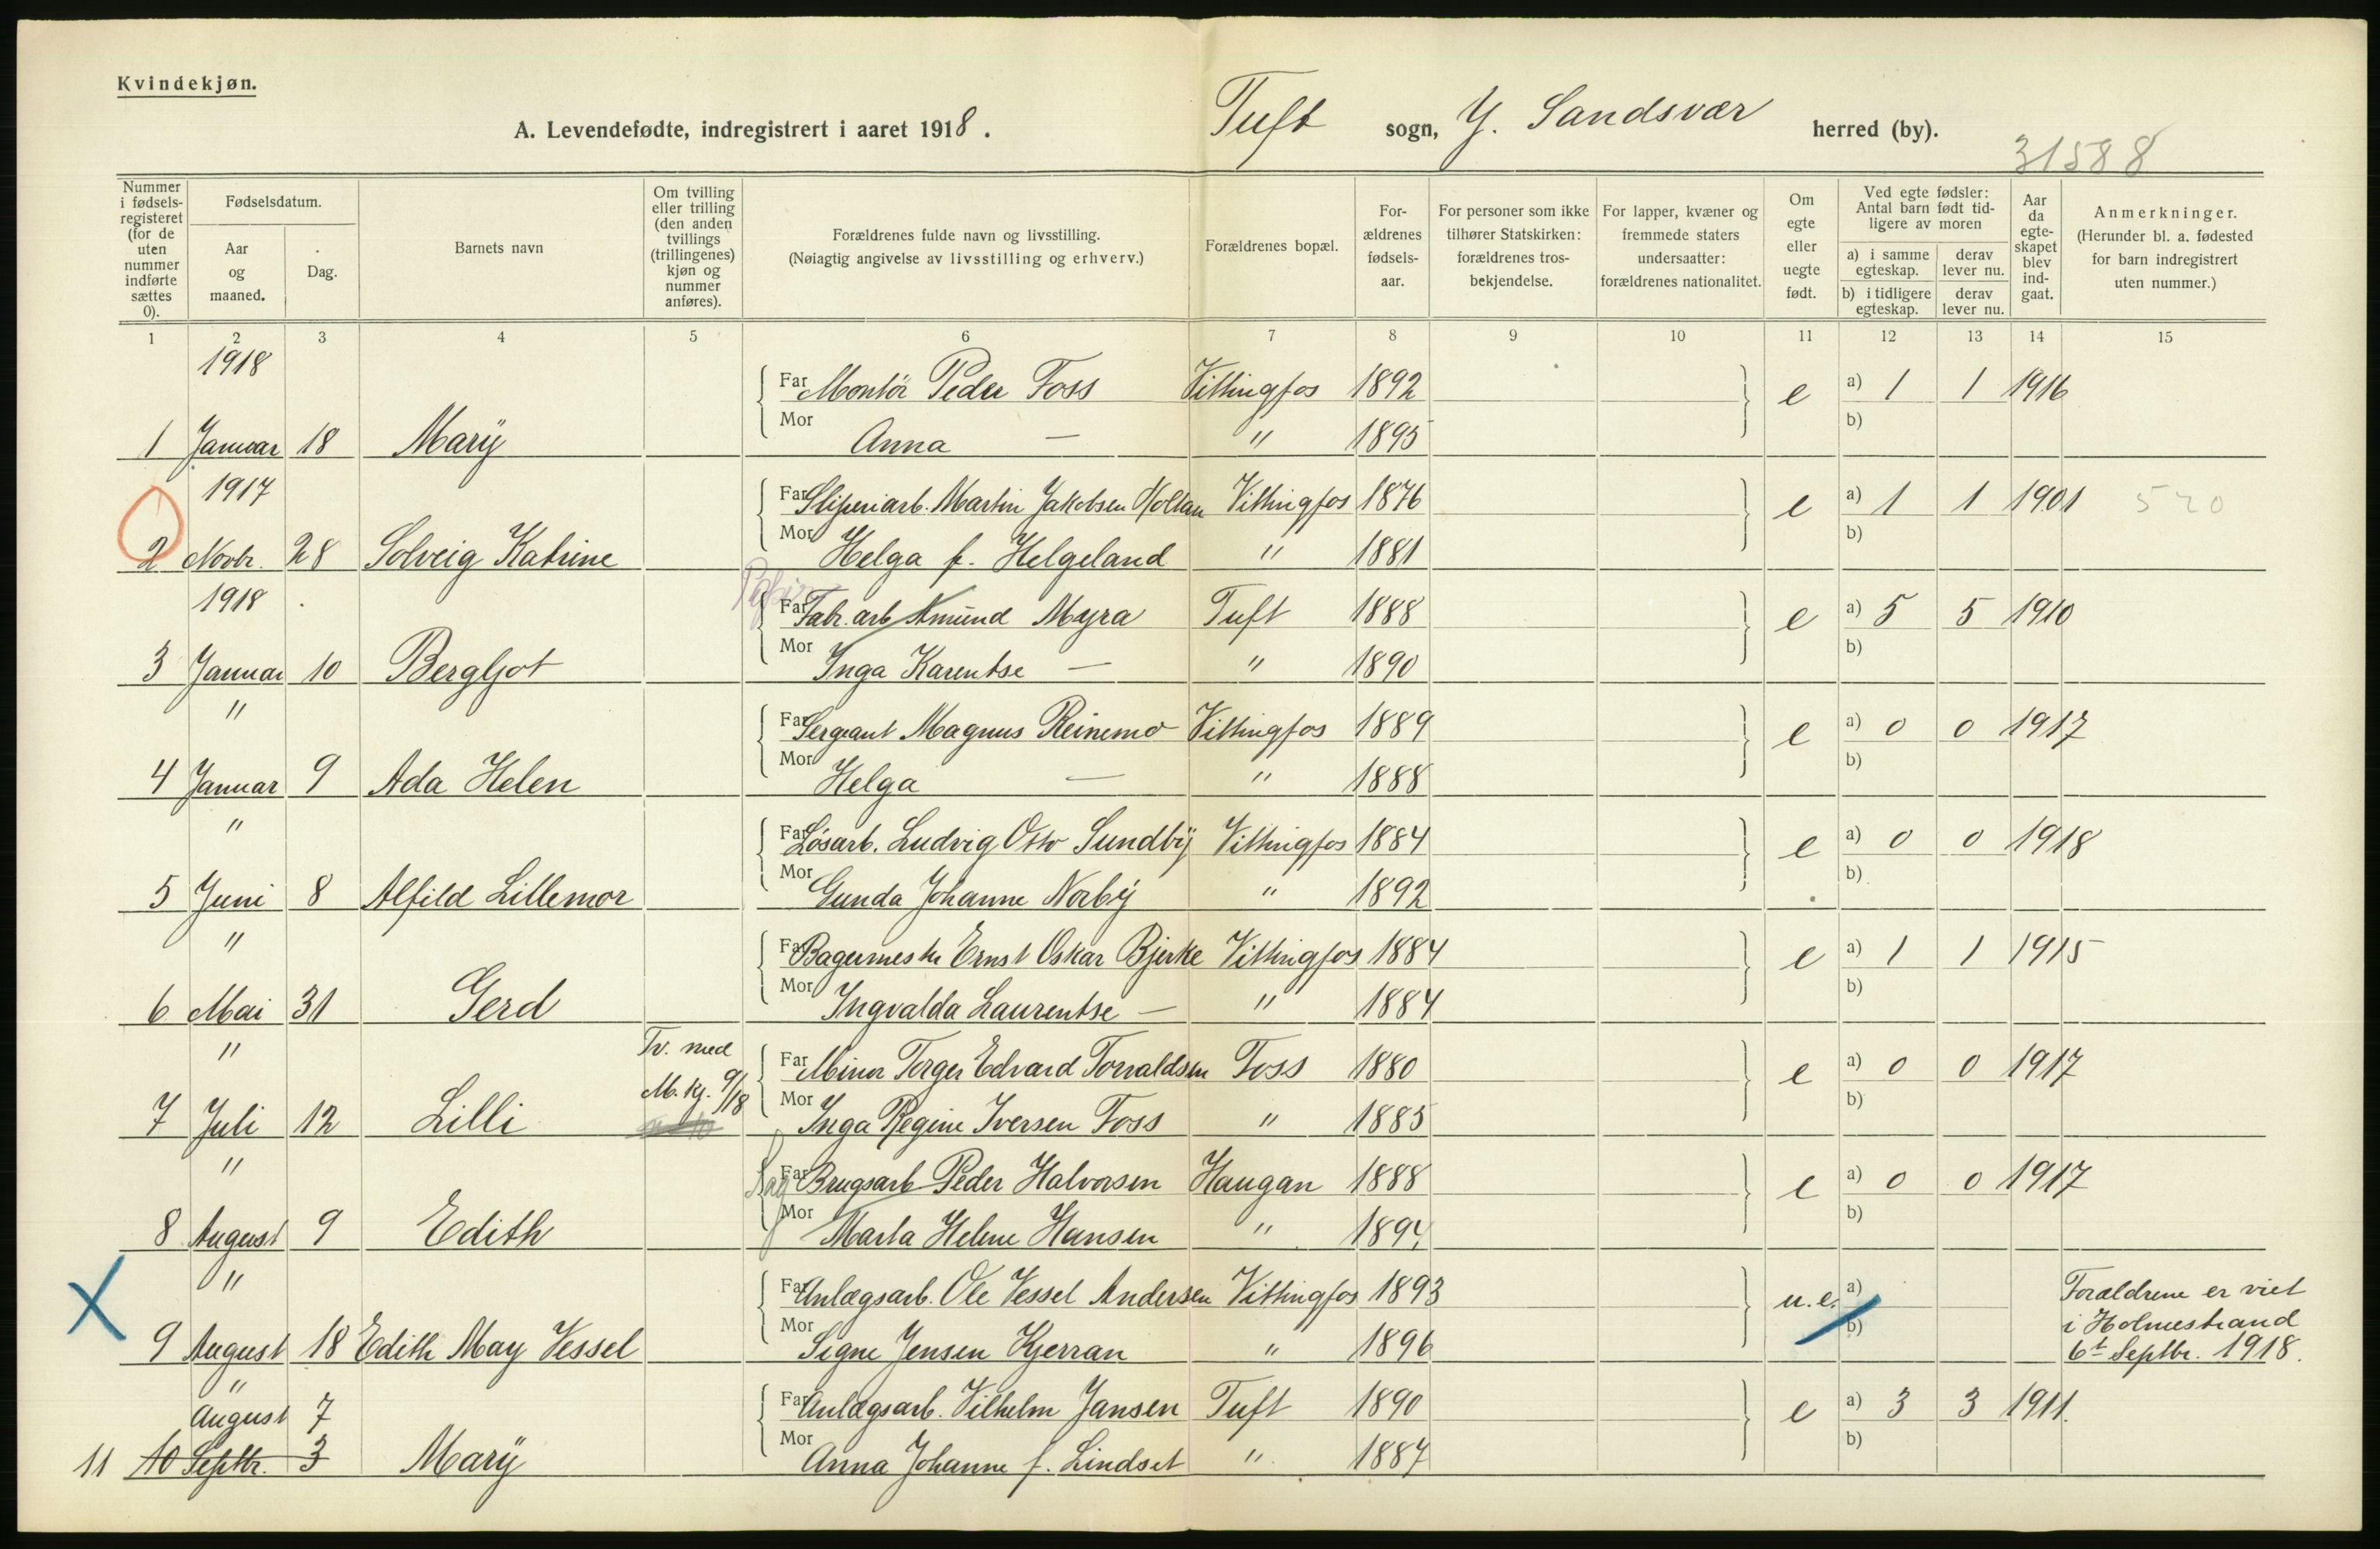 Kvindekjøn.
A. Levendefødte, indregistrert i aaret 1918.
Tuft sogn, Y. Sandsvær herred (by).
31588
Nummer i fødsels-registeret (for de uten nummer indførte sættes 0).
Fødselsdatum.
Aar og maaned.
Dag.
Barnets navn
Om tvilling eller trilling (den anden tvillings (trillingenes) kjøn og nummer anføres).
Forældrenes fulde navn og livsstilling.
(Nøiagtig angivelse av livsstilling og erhverv.)
Forældrenes bopæl.
For-ældrenes fødsels-aar.
For personer som ikke tilhører Statskirken: forældrenes tros-bekjendelse.
For lapper, kvæner og fremmede staters undersaatter: forældrenes nationalitet.
Om egte eller uegte født.
Ved egte fødsler: Antal barn født tid-ligere av moren
a) i samme egteskap.
derav lever nu.
b) i tidligere egteskap.
derav lever nu.
Aar da egte-skapet blev ind-gaat.
Anmerkninger.
(Herunder bl. a. fødested for barn indregistrert uten nummer.)
1 2 3 4 5 6 7 8 9 10 11 12 13 14 15
1918
Far Montör Peder Foss Vittingfos 1892 e a) 1 1 1916
1 Januar 18 Marÿ Mor Anna — " 1895 b)
1917
Far Sliperiarb. Martin Jakobsen Holtan Vittingfos 1876 e a) 1 1 1901 520
2 Novbr. 28 Solveig Katrine Mor Helga f. Helgeland " 1881 b)
1918
Far Fabr. arb Amund Myra Tuft 1888 e a) 5 5 1910
3 Januar 10 Bergljot Mor Inga Karentse — " 1890 b)
"
Far Sergeant Magnus Reinemo Vittingfos 1889 e a) 0 0 1917
4 Januar 9 Ada Helen Mor Helga — " 1888 b)
"
Far Løsarb. Ludvig Otto Sundbÿ Vittingfos 1884 e a) 0 0 1918
5 Juni 8 Alfild Lillemor Mor Gunda Johanne Norbÿ " 1892 b)
"
Far Bagermester Ernst Oskar Bjerke Vittingfos 1884 e a) 1 1 1915
6 Mai 31 Gerd Mor Ingvalda Laurentse — " 1884 b)
"
Tv. med
Far Miner Torger Edvard Torvaldsen Foss 1880 e a) 0 0 1917
M. kj. 9/18
7 Juli 12 Lilli Mor Inga Regine Iversen Foss " 1885 b)
"
Far Brugsarb Peder Halvorsen Haugan 1888 e a) 0 0 1917
8 August 9 Edith Mor Marta Helene Hansen " 1894 b)
"
Far Anlægsarb. Ole Vessel Andersen Vittingfos 1893 u.e. a) Forældrene er viet
i Holmestrand
9 August 18 Edith May Vessel Mor Signe Jensen Kjerran " 1896 b) 6t Septbr. 1918.
"
August 7 Far Anlægsarb. Vilhelm Jansen Tuft 1890 e a) 3 3 1911.
11 10 Septbr. 3 Marÿ Mor Anna Johanne f. Lindset " 1887 b)